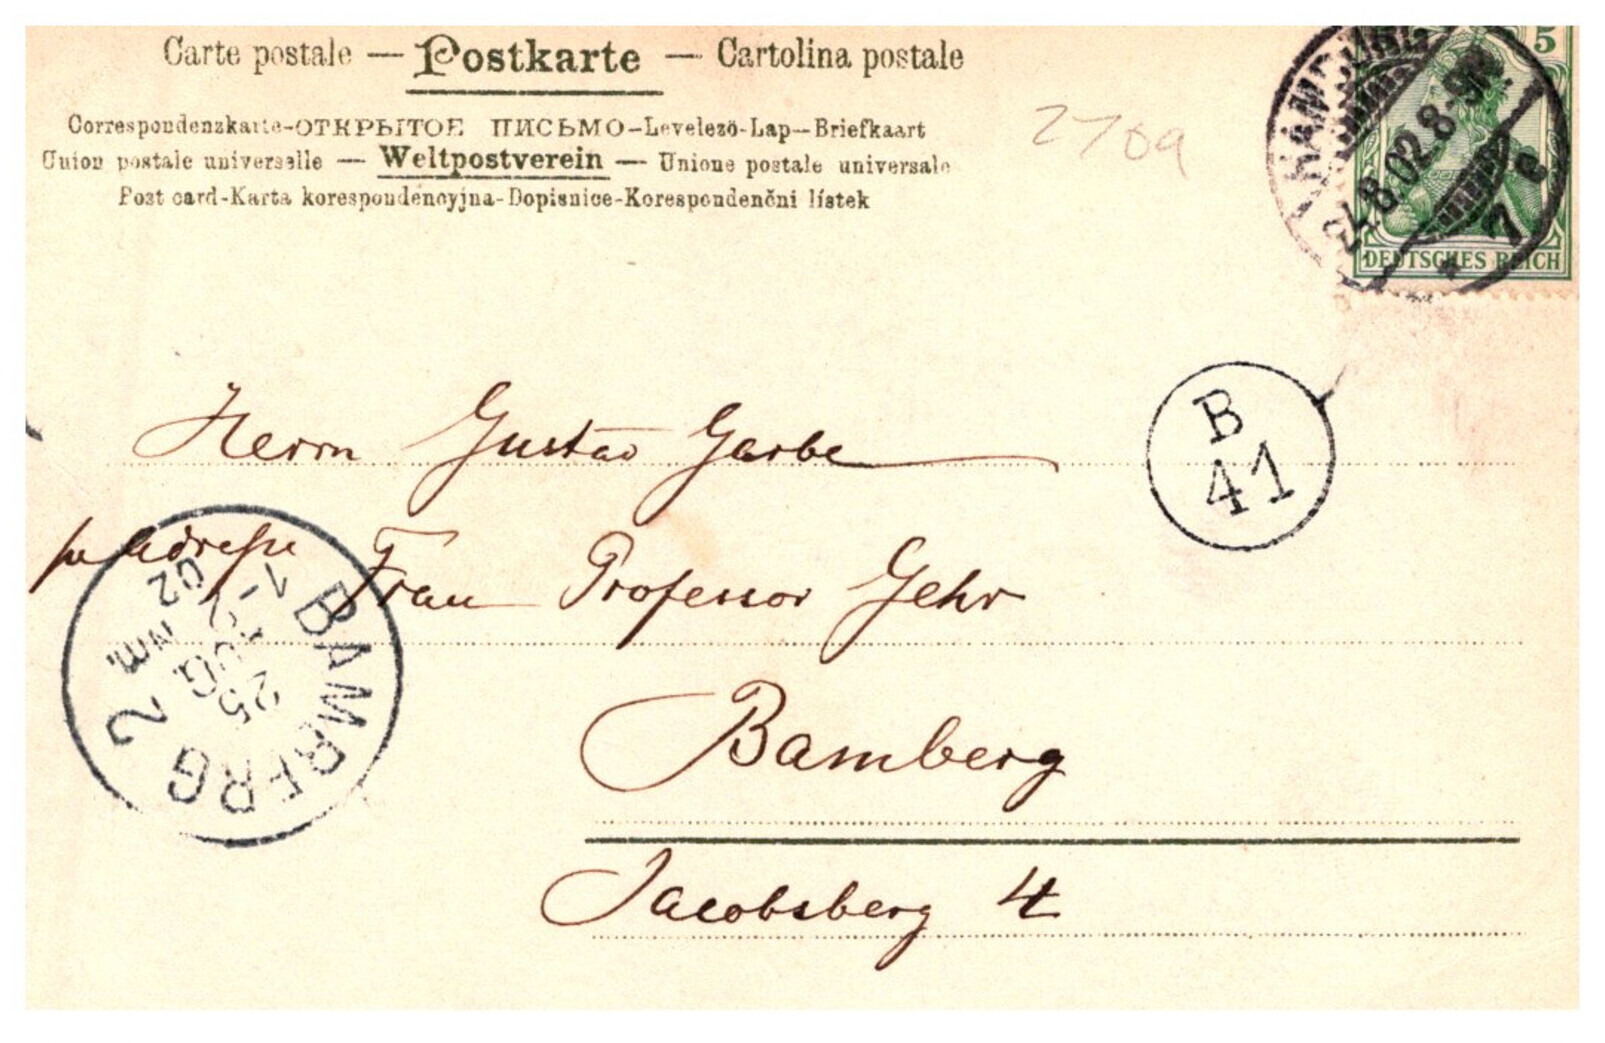 Carte postale — Postkarte — Cartolina postale
Correspondenzkarte-ОТКРЫТОЕ ПИСЬМО-Levelező-Lap-Briefkaart
Union postale universelle — Weltpostverein — Unione postale universale
Post card-Karta korespondencyjna-Dopisnice-Korespondenční lístek
2709
5
HAMBURG
24.8.02.8-9N.
* 7 c
DEUTSCHES REICH
B
41
Herrn Gustav Garbe
pr Adresse Frau Professor Gehr
Bamberg
Jacobsberg 4
BAMBERG 2
25
AUG.
1-2 Nm.
02